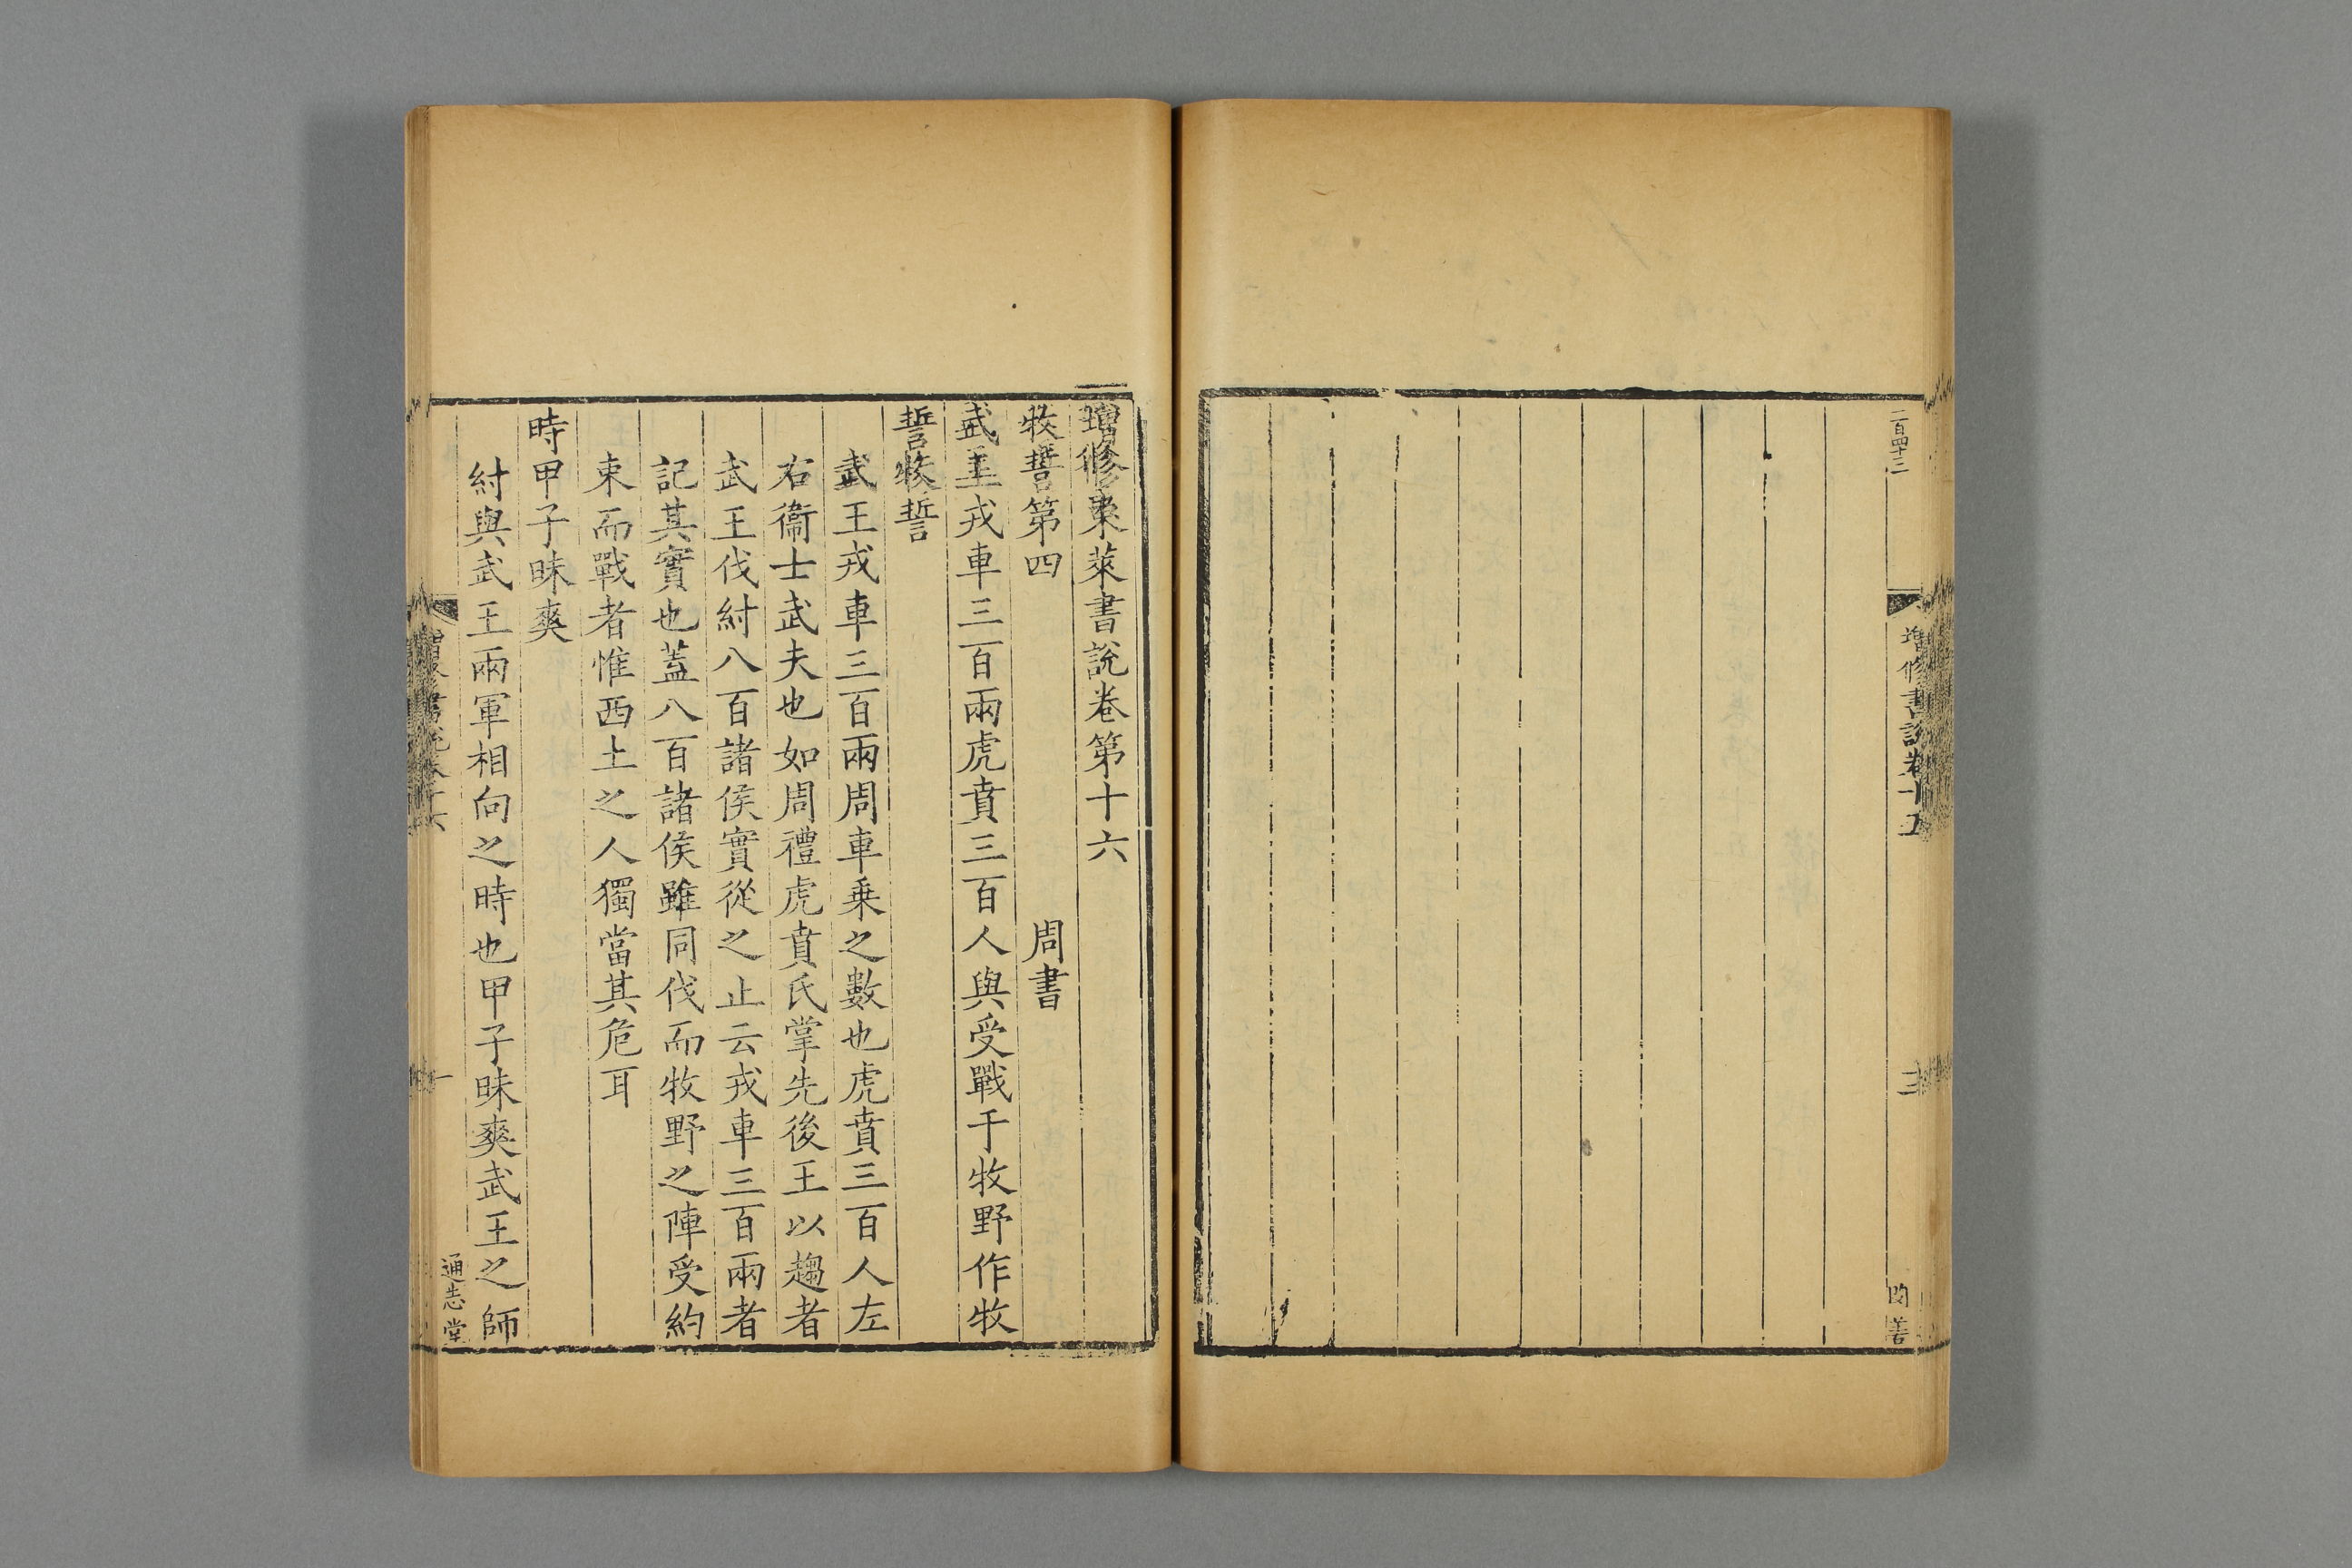 二百四十三
增修書說卷十五
三
增修東萊書說卷第十六
牧誓第四
周書
武王戎車三百兩虎賁三百人與受戰于牧野作牧
誓牧誓
武王戎車三百兩周車乗之數也虎賁三百人左
右衞士武夫也如周禮虎賁氏掌先後王以趨者
武王伐紂八百諸侯實從之止云戎車三百兩者
記其實也蓋八百諸侯雖同伐而牧野之陣受約
束而戰者惟西土之人獨當其危耳
時甲子昧爽
紂與武王兩軍相向之時也甲子昧爽武王之師
一
通志堂